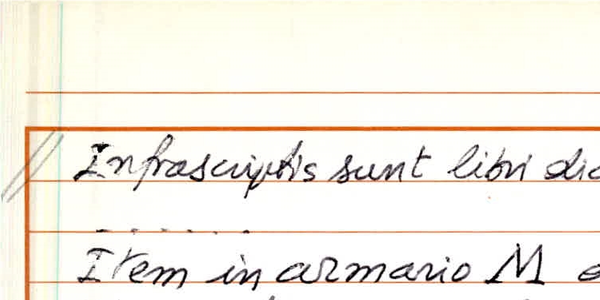 Infrascriptis sunt libri
. . . . . . .
Item in armario M